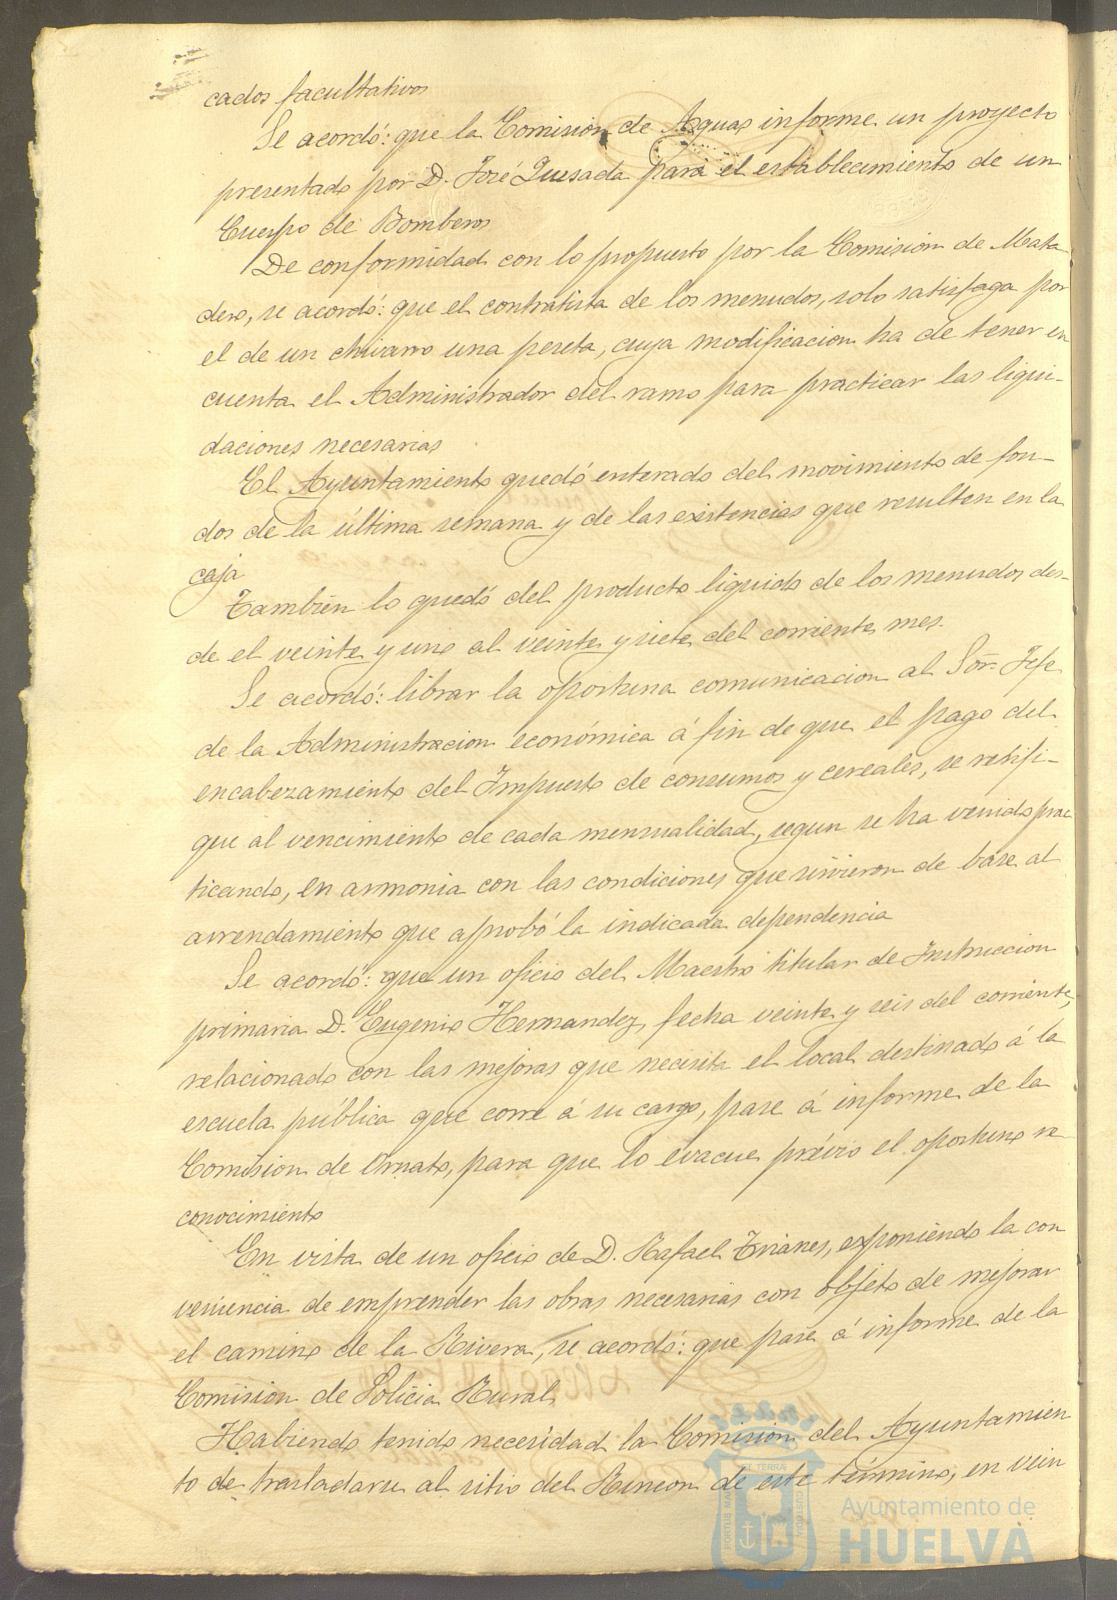 cados facultativos
Se acordó: que la Comision de Aguas informe un proyecto
presentado por D. José Quesada para el establecimiento de un
Cuerpo de Bomberos
De conformidad con lo propuesto por la Comision de Mata
dero, se acordó: que el contratista de los menudos, solo satisfaga por
el de un chivarro una peseta, cuya modificacion ha de tener en
cuenta el Administrador del ramo para practicar las liqui-
daciones necesarias
El Ayuntamiento quedó enterado del movimiento de fon-
dos de la última semana y de las existencias que resulten en la
caja
Tambien lo quedó del producto liquido de los menudos des-
de el veinte y uno al veinte y siete del corriente mes.
Se acordó: librar la oportuna comunicacion al Sõr. Jefe
de la Administracion económica á fin de que el pago del
encabezamiento del Impuesto de consumos y cereales, se ratifi-
que al vencimiento de cada mensualidad, segun se ha venido prac
ticando, en armonia con las condiciones que sirvieron de base al
arrendamiento que aprobó la indicada dependencia
Se acordó: que un oficio del Maestro titular de Instruccion
primaria D. Eugenio Hernandez, fecha veinte y seis del corriente,
relacionado con las mejoras que necesita el local destinado á la
escuela pública que corre á su cargo, pase á informe de la
Comision de Ornato, para que lo evacue prévio el oportuno re
conocimiento
En vista de un oficio de D. Rafael Trianes, exponiendo la con
veniencia de emprender las obras necesarias con objeto de mejorar
el camino de la Rivera, se acordó: que pase á informe de la
Comision de Policia Rural
Habiendo tenido necesidad la Comision del Ayuntamien
to de trasladarse al sitio del Rincon de este término, en vein
Ayuntamiento de
HUELVA